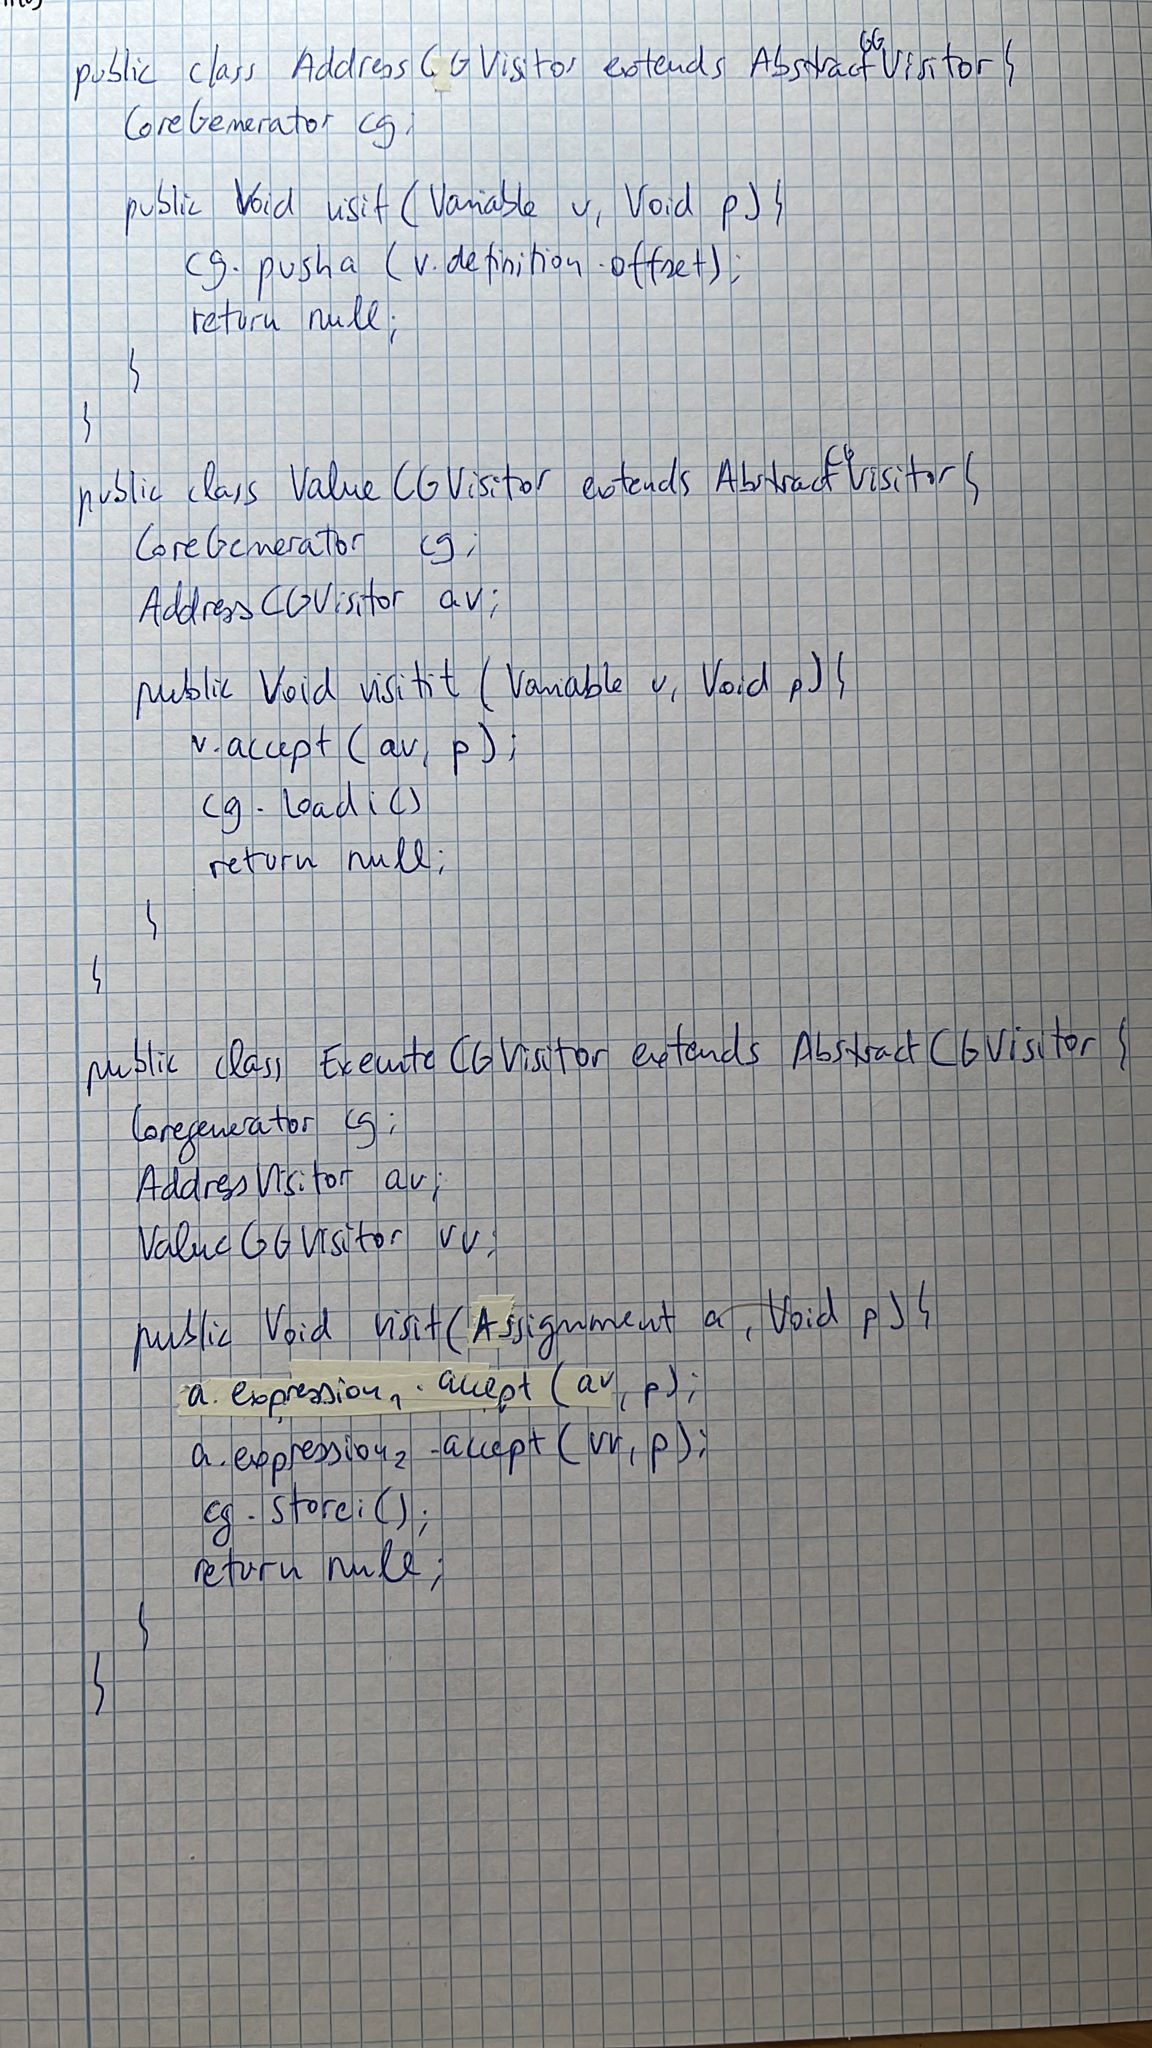 public class AddressCGVisitor extends AbstractCGVisitor{
CoreGenerator cg;
public Void visit (Variable v, Void p){
cg.pusha (v.definition.offset);
return null;
}
}
public class ValueCGVisitor extends AbstractCGVisitor{
CoreGenerator cg;
AddressCGVisitor av;
public Void visitit (Variable v, Void p){
v.accept (av, p);
cg.loadi()
return null;
}
}
public class ExecuteCGVisitor extends AbstractCGVisitor{
Coregenerator cg;
AddressVisitor av;
ValueCGVisitor vv;
public Void visit(Assignment a, Void p){
a.expression₁.accept(av, p);
a.expression₂.accept(vv, p);
cg.storei();
return null;
}
}